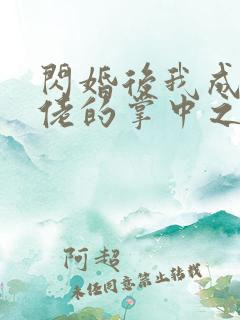 閃婚後我成
佬的掌中之
阿超
未任同意禁止转载